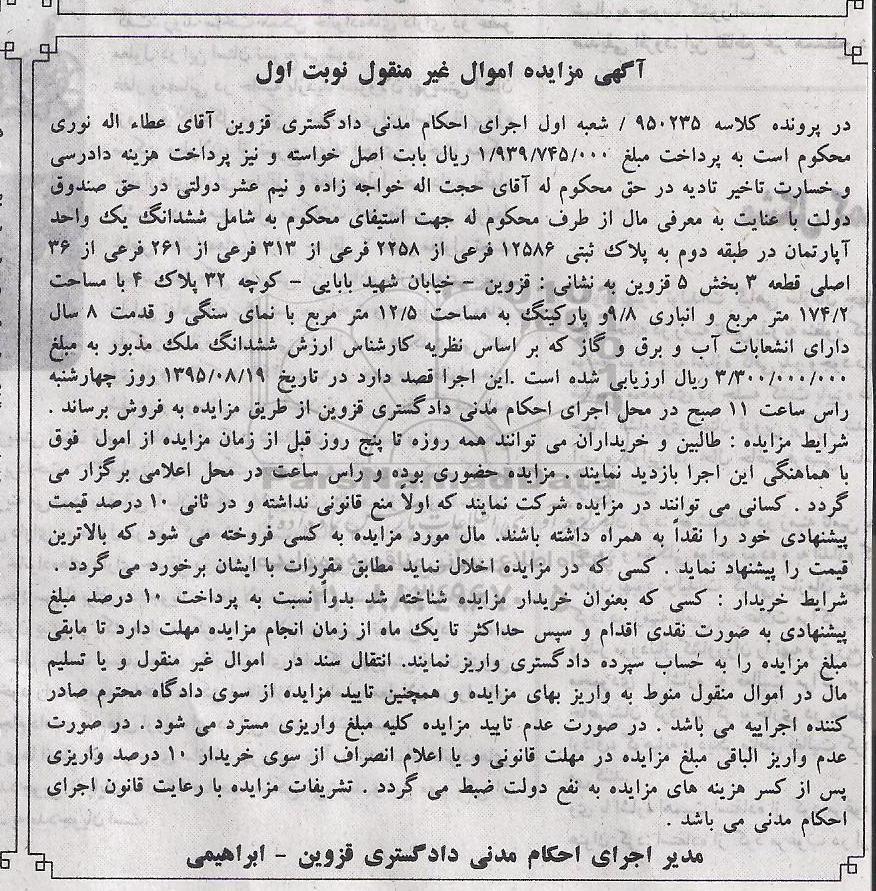 آگهی مزایده اموال غیر منقول نوبت اول
در پرونده کلاسه ۹۵۰۲۳۵ / شعبه اول اجرای احکام مدنی دادگستری قزوین آقای عطاء اله نوری
محکوم است به پرداخت مبلغ ۱/۹۳۹/۷۴۵/۰۰۰ ریال بابت اصل خواسته و نیز پرداخت هزینه دادرسی
و خسارت تاخیر تادیه در حق محکوم له آقای حجت اله خواجه زاده و نیم عشر دولتی در حق صندوق
دولت با عنایت به معرفی مال از طرف محکوم له جهت استیفای محکوم به شامل ششدانگ یک واحد
آپارتمان در طبقه دوم به پلاک ثبتی ۱۲۵۸۶ فرعی از ۲۲۵۸ فرعی از ۳۱۳ فرعی از ۲۶۱ فرعی از ۳۶
اصلی قطعه ۳ بخش ۵ قزوین به نشانی : قزوین - خیابان شهید بابایی - کوچه ۳۲ پلاک ۴ با مساحت
۱۷۴/۲ متر مربع و انباری ۹/۸و پارکینگ به مساحت ۱۲/۵ متر مربع با نمای سنگی و قدمت ۸ سال
دارای انشعابات آب و برق و گاز که بر اساس نظریه کارشناس ارزش ششدانگ ملک مذبور به مبلغ
۳/۳۰۰/۰۰۰/۰۰۰ ریال ارزیابی شده است .این اجرا قصد دارد در تاریخ ۱۳۹۵/۰۸/۱۹ روز چهارشنبه
راس ساعت ۱۱ صبح در محل اجرای احکام مدنی دادگستری قزوین از طریق مزایده به فروش برساند .
شرایط مزایده : طالبین و خریداران می توانند همه روزه تا پنج روز قبل از زمان مزایده از اموال فوق
با هماهنگی این اجرا بازدید نمایند . مزایده حضوری بوده و راس ساعت در محل اعلامی برگزار می
گردد . کسانی می توانند در مزایده شرکت نمایند که اولاً منع قانونی نداشته و در ثانی ۱۰ درصد قیمت
پیشنهادی خود را نقداً به همراه داشته باشند. مال مورد مزایده به کسی فروخته می شود که بالاترین
قیمت را پیشنهاد نماید . کسی که در مزایده اخلال نماید مطابق مقررات با ایشان برخورد می گردد .
شرایط خریدار : کسی که بعنوان خریدار مزایده شناخته شد بدواً نسبت به پرداخت ۱۰ درصد مبلغ
پیشنهادی به صورت نقدی اقدام و سپس حداکثر تا یک ماه از زمان انجام مزایده مهلت دارد تا مابقی
مبلغ مزایده را به حساب سپرده دادگستری واریز نمایند. انتقال سند در اموال غیر منقول و یا تسلیم
مال در اموال منقول منوط به واریز بهای مزایده و همچنین تایید مزایده از سوی دادگاه محترم صادر
کننده اجراییه می باشد . در صورت عدم تایید مزایده کلیه مبلغ واریزی مسترد می شود . در صورت
عدم واریز الباقی مبلغ مزایده در مهلت قانونی و یا اعلام انصراف از سوی خریدار ۱۰ درصد واریزی
پس از کسر هزینه های مزایده به نفع دولت ضبط می گردد . تشریفات مزایده با رعایت قانون اجرای
احکام مدنی می باشد .
مدیر اجرای احکام مدنی دادگستری قزوین - ابراهیمی